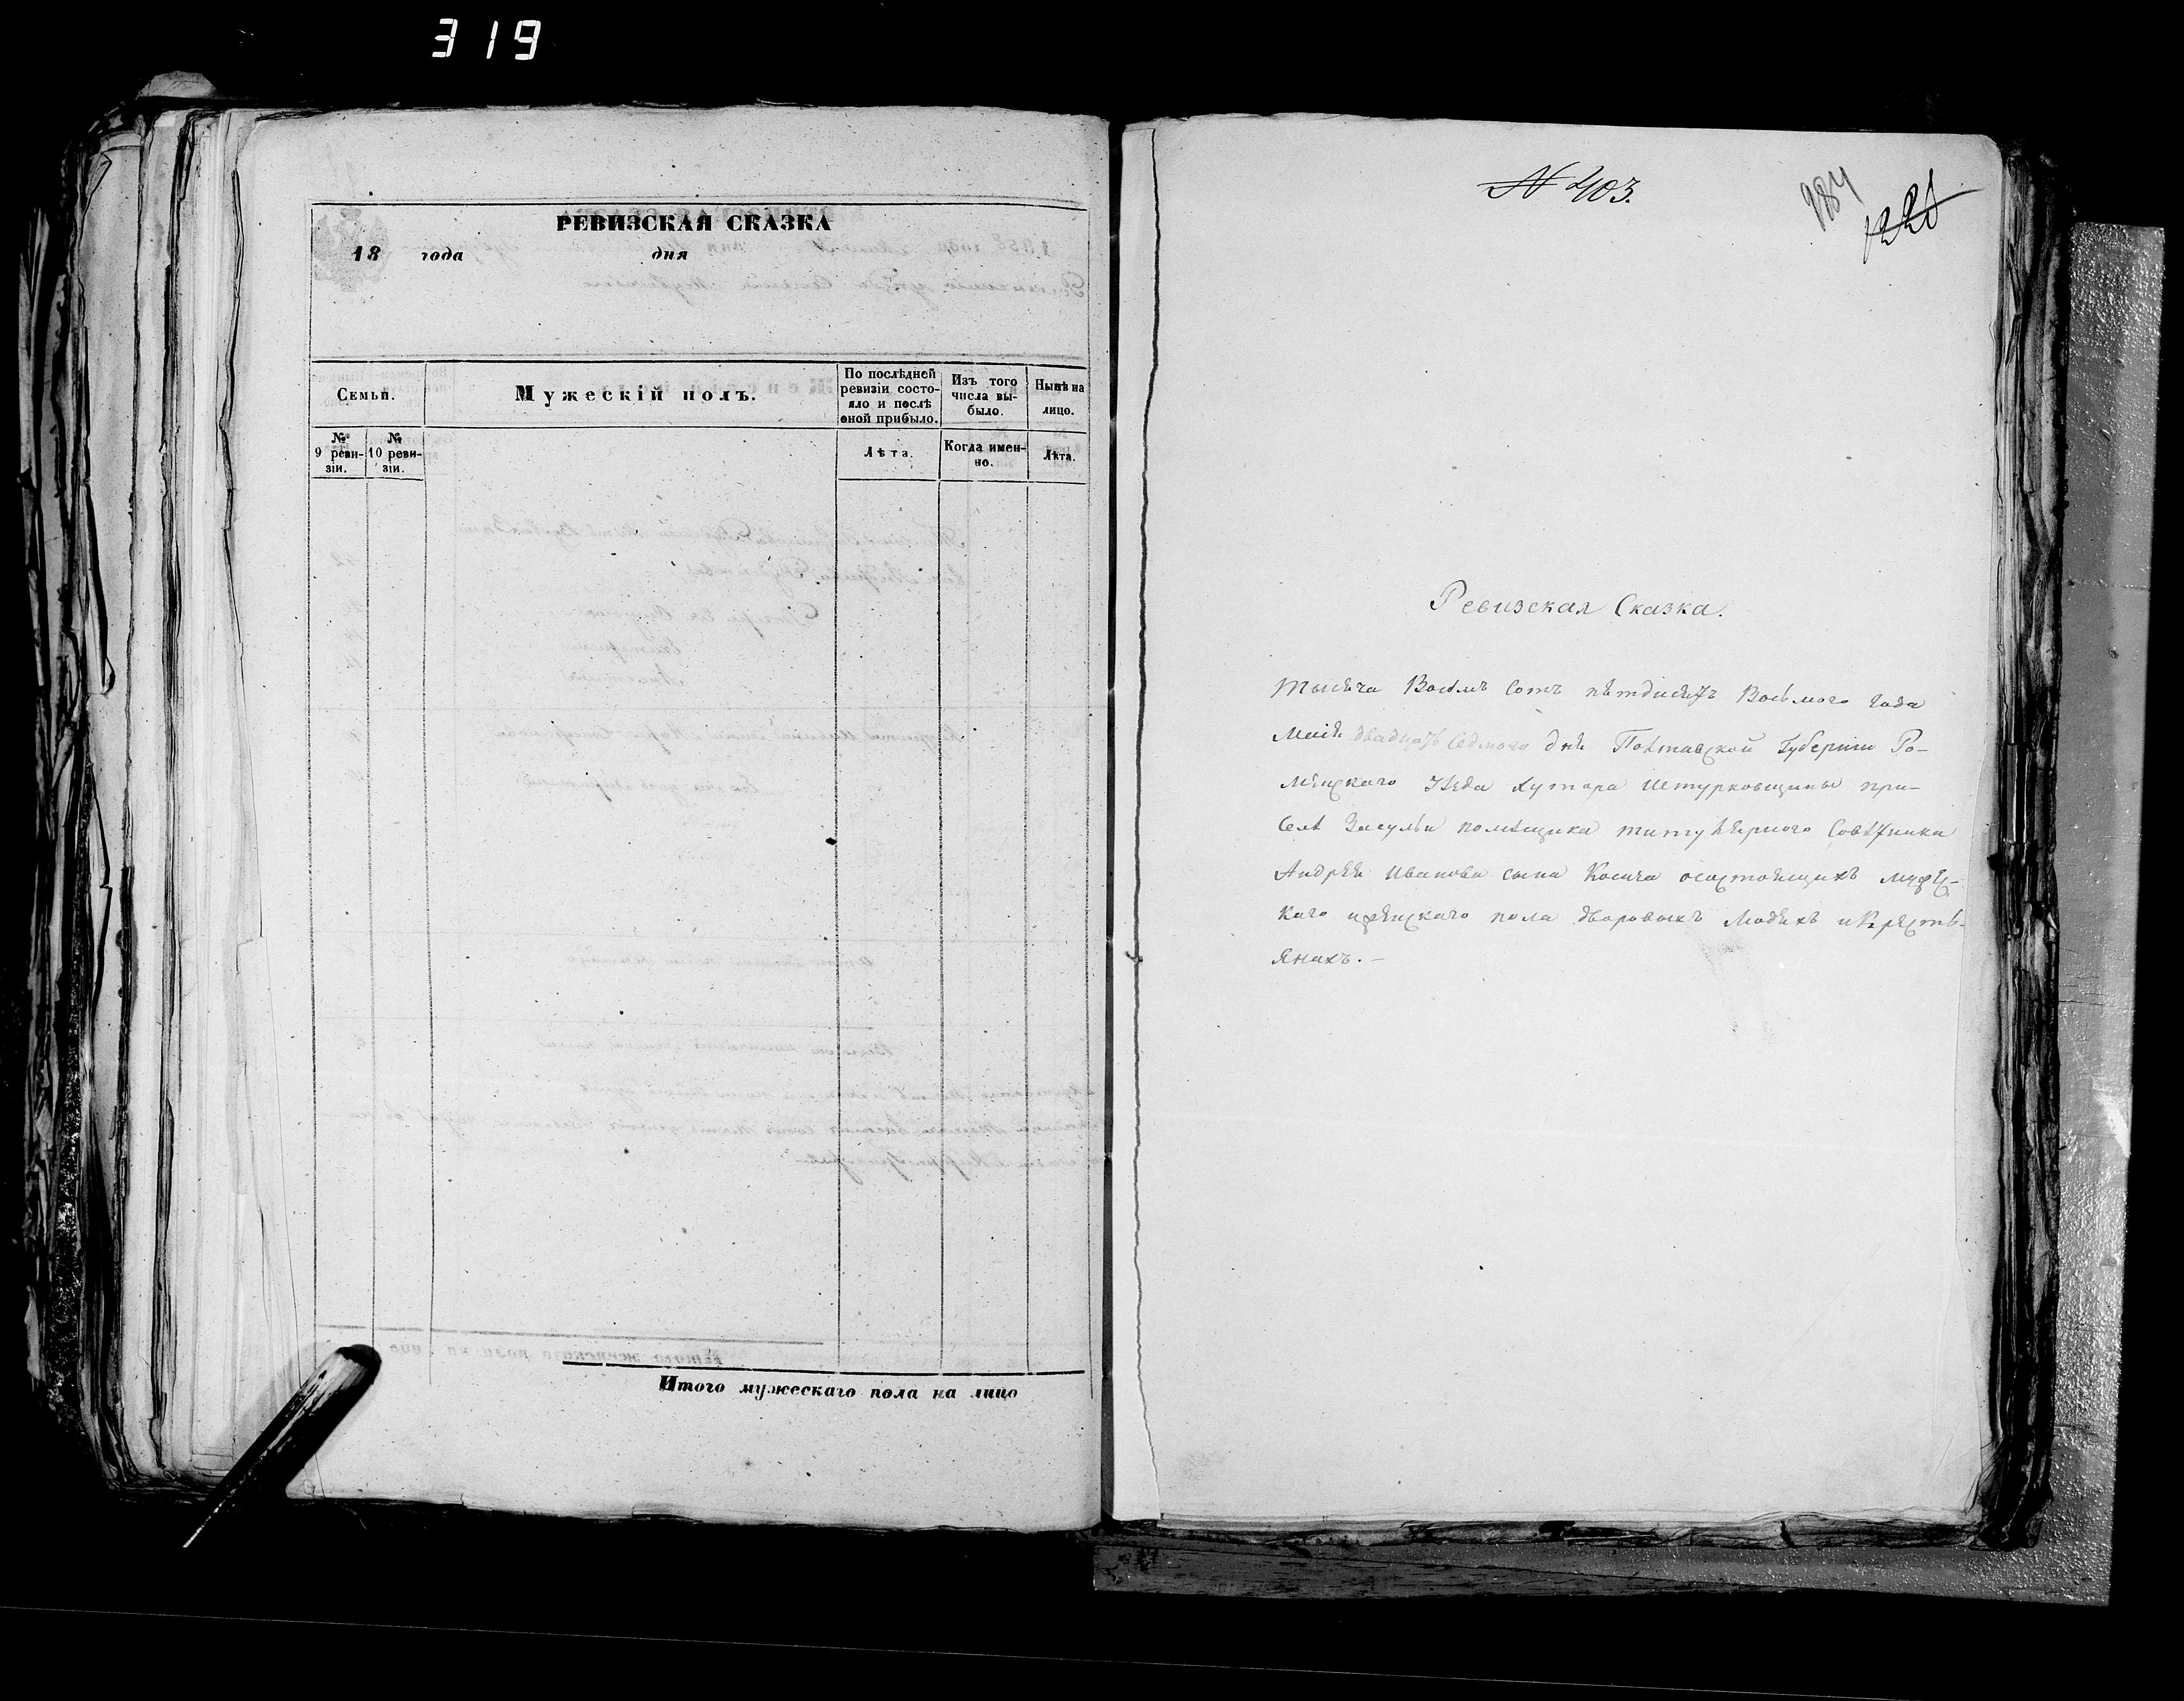 319
РЕВИЗСКАЯ СКАЗКА
18 года дня
Семьи.
Мужескій полъ.
По послѣдней ревизіи состояло и послѣ оной прибыло.
Изъ того числа выбыло.
Нынѣ на лицо.
№ 9 ревизіи.
№ 10 ревизіи.
Лѣта.
Когда именно.
Лѣта.
Итого мужескаго пола на лицо
№ 403.
984
Ревизская Сказка.
Тысяча Восемь сотъ пятдисятъ Восьмого года
Маія двадцать седмого дня Полтавской губерніи Ро-
менскаго уезда хутора при
селѣ Засулья помѣщика титулярного совѣтника
Андрея Иванова сына Косича осостоящихъ мужес-
каго иженскаго пола дворовыхъ людехъ икресть-
янахъ.-